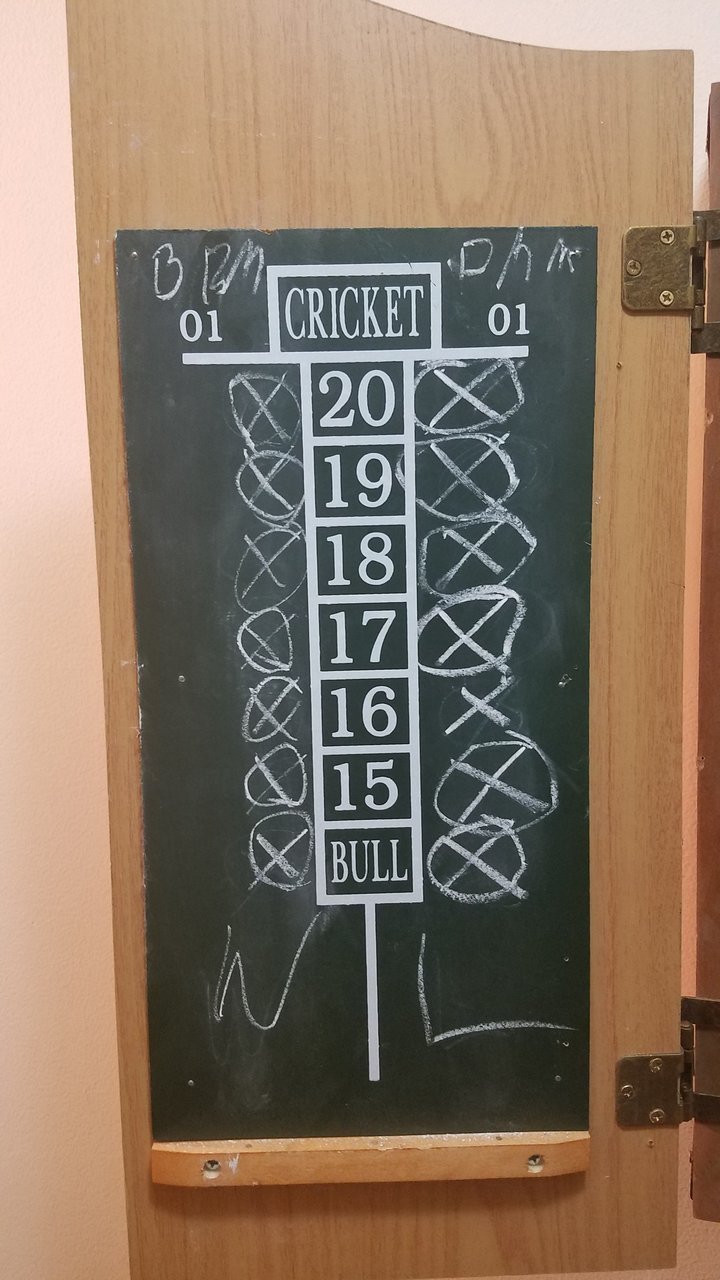 CRICKET
01 01
20
19
18
17
16
15
BULL
L